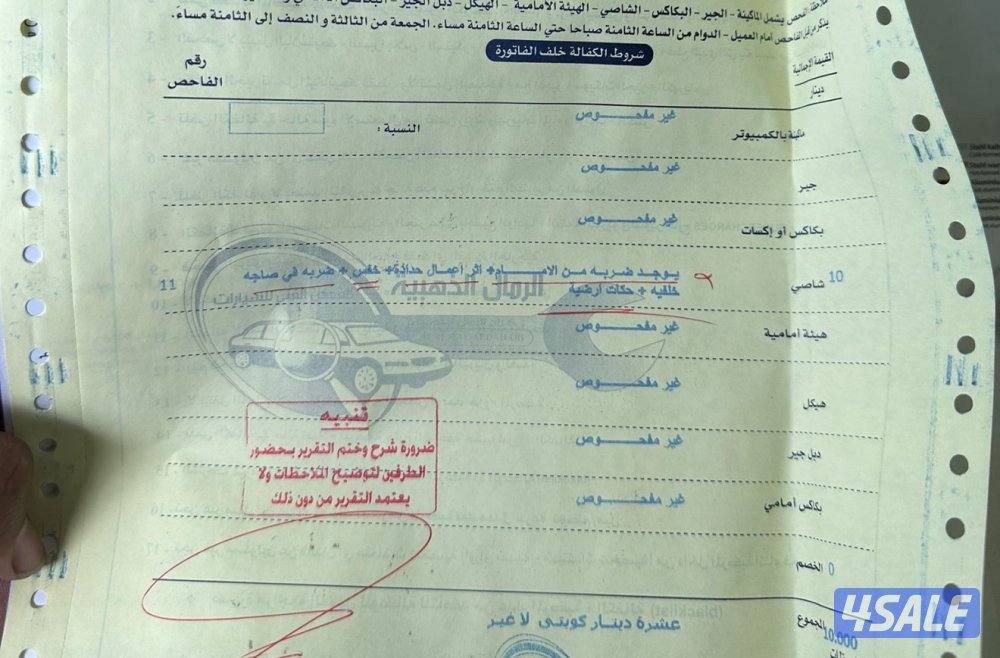 ملاحظة الفحص يشمل الماكينة - الجير - البكاكس - الشاصي - الهيئة الأمامية - الهيكل - دبل الجير - البكاكس
الفاحص أمام العميل - الدوام من الساعة الثامنة صباحا حتى الساعة الثامنة مساء. الجمعة من الثالثة و النصف إلى الثامنة مساءً.
شروط الكفالة خلف الفاتورة
القيمة الإجمالية
رقم الفاحص
دينار
غير مفحـــوص
ماكينة بالكمبيوتر
النسبة :
غير مفحـــوص
جير
غير مفحـــوص
بكاكس أو إكسات
10 شاصي
يوجد ضربه من الامـــام+ اثر أعمال حدادة+ خفس + ضربه في صاجه 11
خلفيه + حكات أرضية
الرمال الذهبية
غير مفحـــوص
هيئة أمامية
غير مفحـــوص
هيكل
غير مفحـــوص
دبل جير
غير مفحـــوص
بكاكس أمامي
تنبيه
ضرورة شرح وختم التقرير بحضور
الطرفين لتوضيح الملاحظات ولا
يعتمد التقرير من دون ذلك
0 الخصم
المجموع
10.000
عشرة دينار كويتى لا غير
4SALE